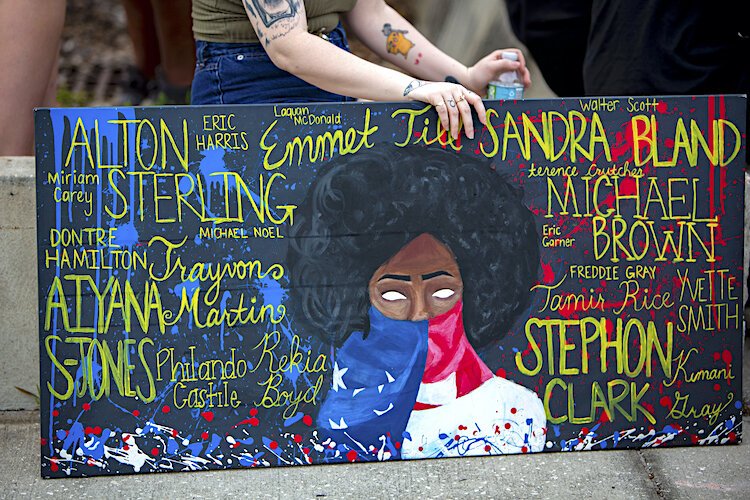 ALTON
STERLING
ERIC
HARRIS
Laquan
McDonald
Emmet Till
Walter Scott
SANDRA BLAND
Miriam
Carey
MICHAEL NOEL
terence Crutcher
MICHAEL
BROWN
Eric
Garner
DONTRE
HAMILTON
Trayvon
Martin
FREDDIE GRAY
Tamir Rice
YVETTE
SMITH
AIYANA
S-JONES
Philando
Castile
Rekia
Boyd
STEPHON
CLARK
Kimani
Gray